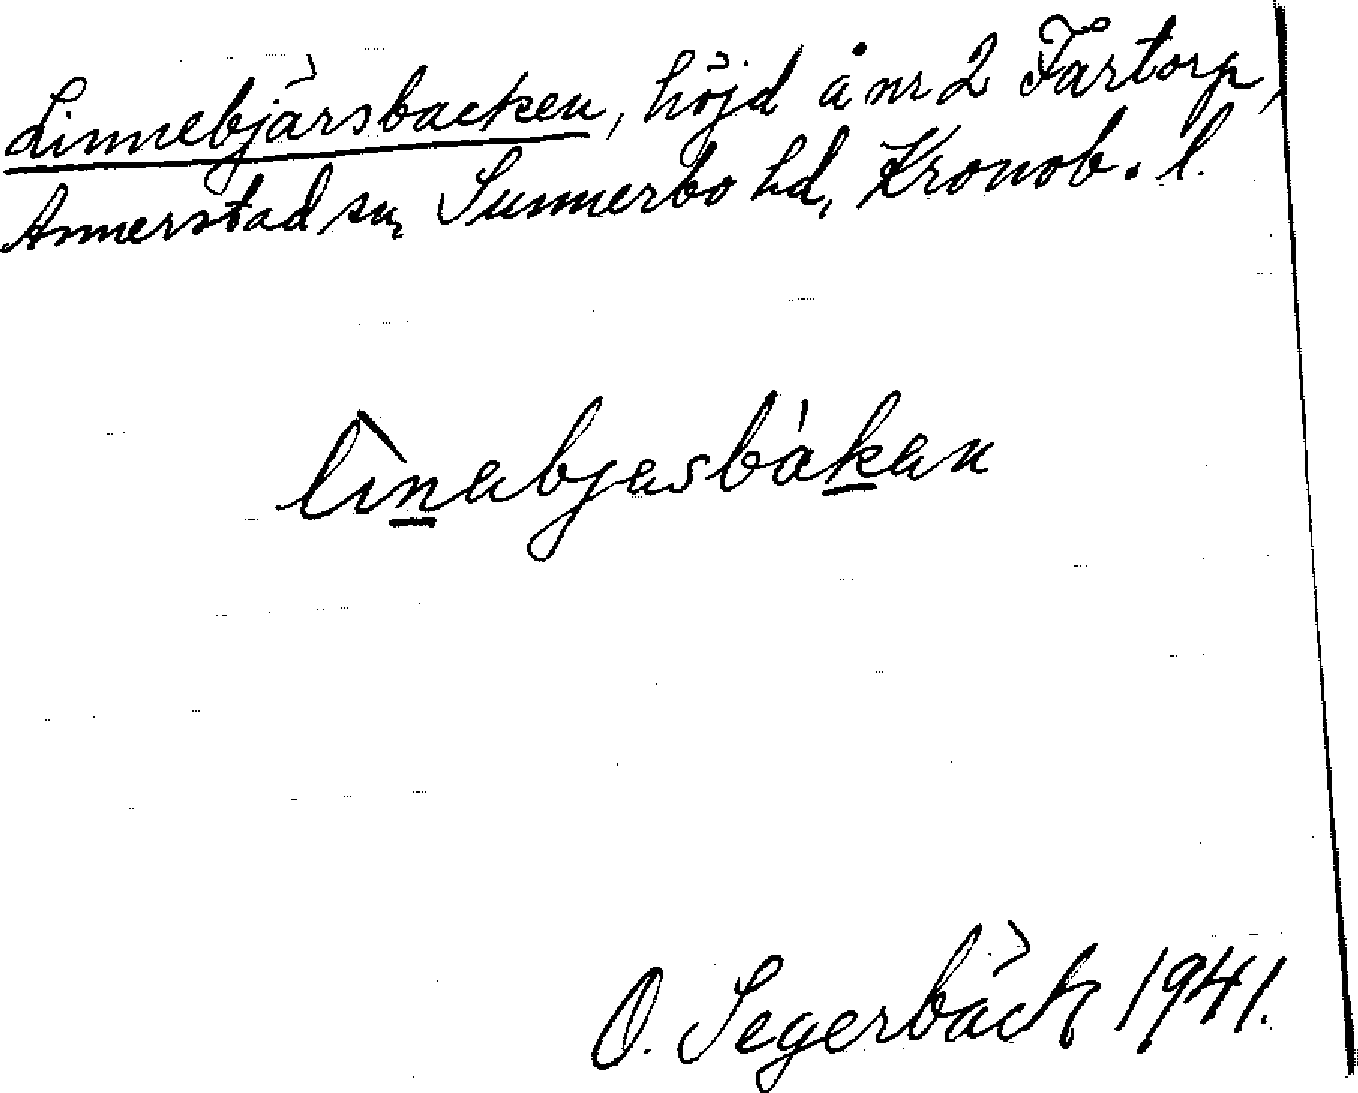 Linnebjärsbacken, höjd å nr 2 Fartorp,
Annerstad sn, Sunnerbo hd, Kronob. l.
lìnabjasbàkan
O. Segerbäck 1941.